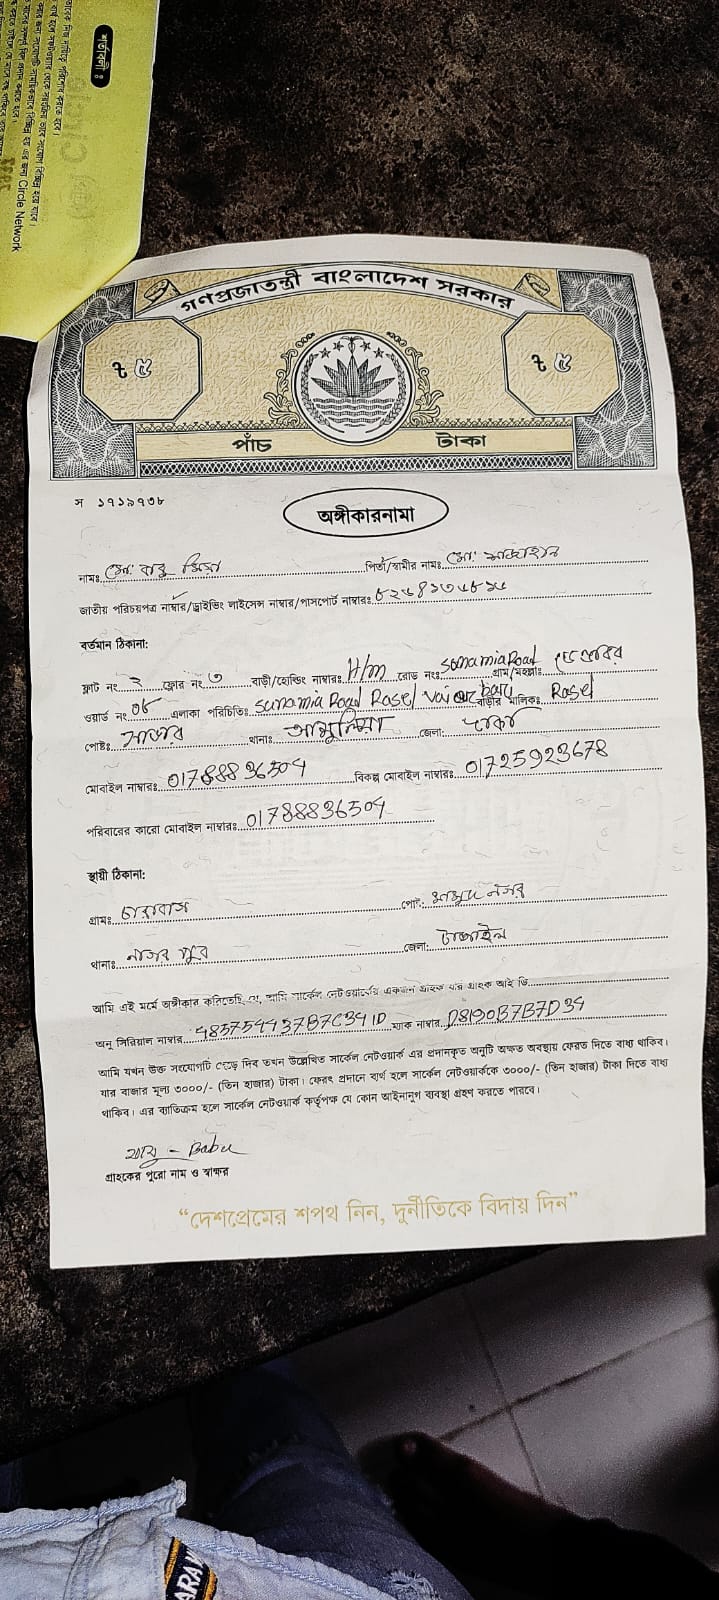 শর্তাবলী :
Circle Network
গণপ্রজাতন্ত্রী বাংলাদেশ সরকার
৳ ৫ ৳ ৫
পাঁচ টাকা
স ১৭১৯৭৩৮
অঙ্গীকারনামা
নামঃ মো: বাবু মিয়া পিতা/স্বামীর নামঃ মো:
জাতীয় পরিচয়পত্র নাম্বার/ড্রাইভিং লাইসেন্স নাম্বার/পাসপোর্ট নাম্বারঃ
বর্তমান ঠিকানা:
ফ্লাট নং ২ ফ্লোর নং ৩ বাড়ী/হোল্ডিং নাম্বারঃ H/m রোড নংঃ sonamiaRoad গ্রাম/মহল্লাঃ
ওয়ার্ড নং 08 এলাকা পরিচিতিঃ Sunamia Road Rasel vai বাড়ীর মালিকঃ Rasel
পোষ্টঃ সাভার থানাঃ আশুলিয়া জেলা: ঢাকা
মোবাইল নাম্বারঃ 01788836504 বিকল্প মোবাইল নাম্বারঃ 01725923678
পরিবারের কারো মোবাইল নাম্বারঃ 01788836504
স্থায়ী ঠিকানা:
গ্রামঃ পোষ্ট:
থানাঃ নাগর পুর জেলা: টাঙ্গাইল
আমি এই মর্মে অঙ্গীকার করিতেছি যে, আমি সার্কেল নেটওয়ার্কের একজন গ্রাহক যার গ্রাহক আই ডি
অনু সিরিয়াল নাম্বার 485754437B7C341D ম্যাক নাম্বার D8190B7B7D34
আমি যখন উক্ত সংযোগটি ছেড়ে দিব তখন উল্লেখিত সার্কেল নেটওয়ার্ক এর প্রদানকৃত অনুটি অক্ষত অবস্থায় ফেরত দিতে বাধ্য থাকিব।
যার বাজার মূল্য ৩০০০/- (তিন হাজার) টাকা। ফেরৎ প্রদানে ব্যর্থ হলে সার্কেল নেটওয়ার্ককে ৩০০০/- (তিন হাজার) টাকা দিতে বাধ্য
থাকিব। এর ব্যতিক্রম হলে সার্কেল নেটওয়ার্ক কর্তৃপক্ষ যে কোন আইনানুগ ব্যবস্থা গ্রহণ করতে পারবে।
বাবু - Babu
গ্রাহকের পুরো নাম ও স্বাক্ষর
“দেশপ্রেমের শপথ নিন, দুর্নীতিকে বিদায় দিন”